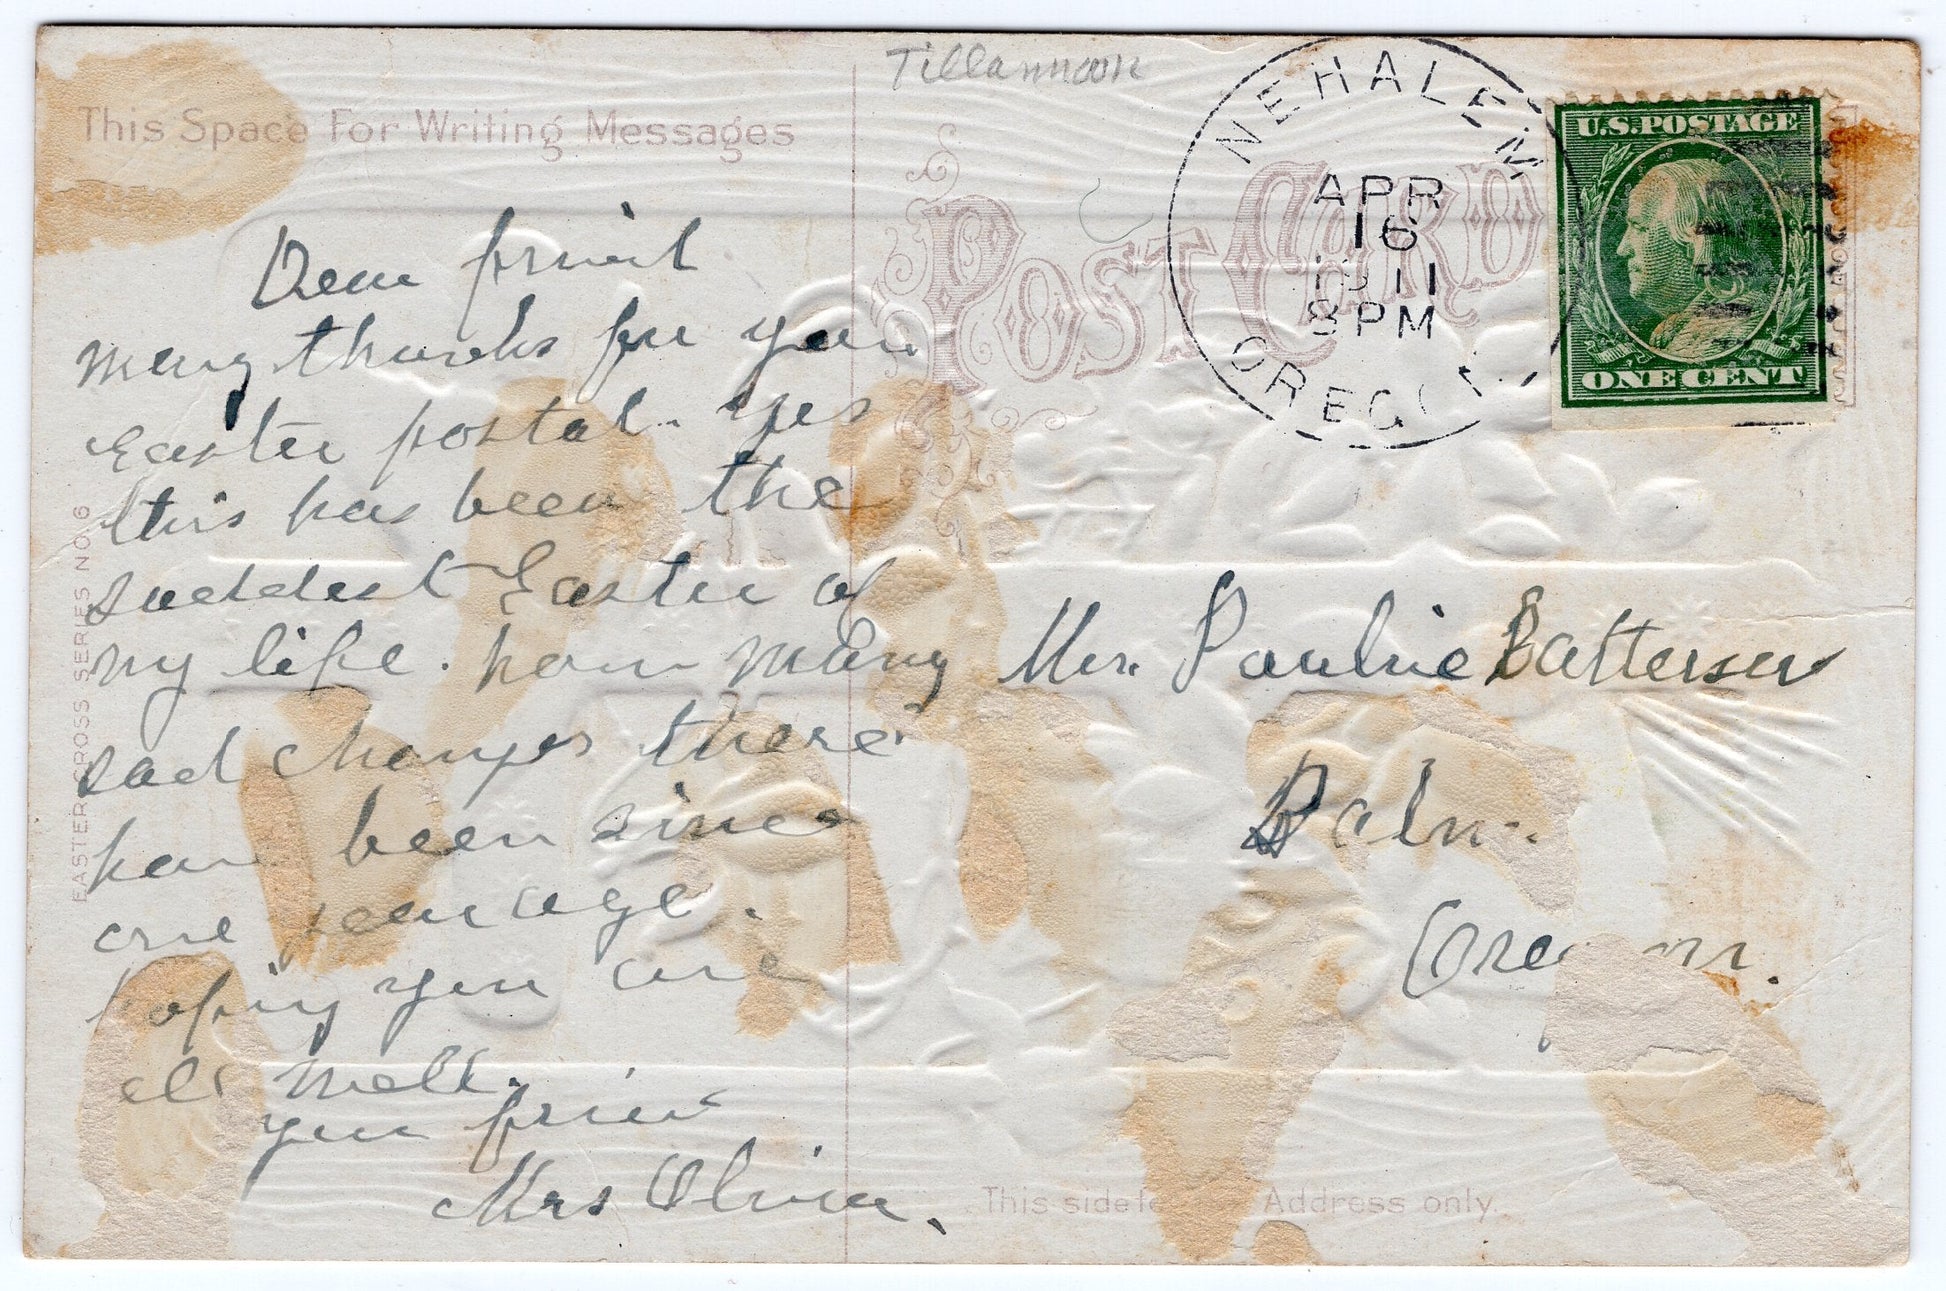 Tillamook
This Space For Writing Messages
Dear friend
many thanks for your
Easter postal. yes
this has been the
saddest Easter of
my life. how many
sad changes there
have been since
one year ago.
hoping you are
all well.
your friend
Mrs Oliver.
EASTER CROSS SERIES NO. 6
POST CARD
NEHALEM
APR
16
1911
8PM
OREGON
U.S. POSTAGE
ONE CENT
Mrs. Pauline Batterson
Balm.
Oregon.
This side for Address only.